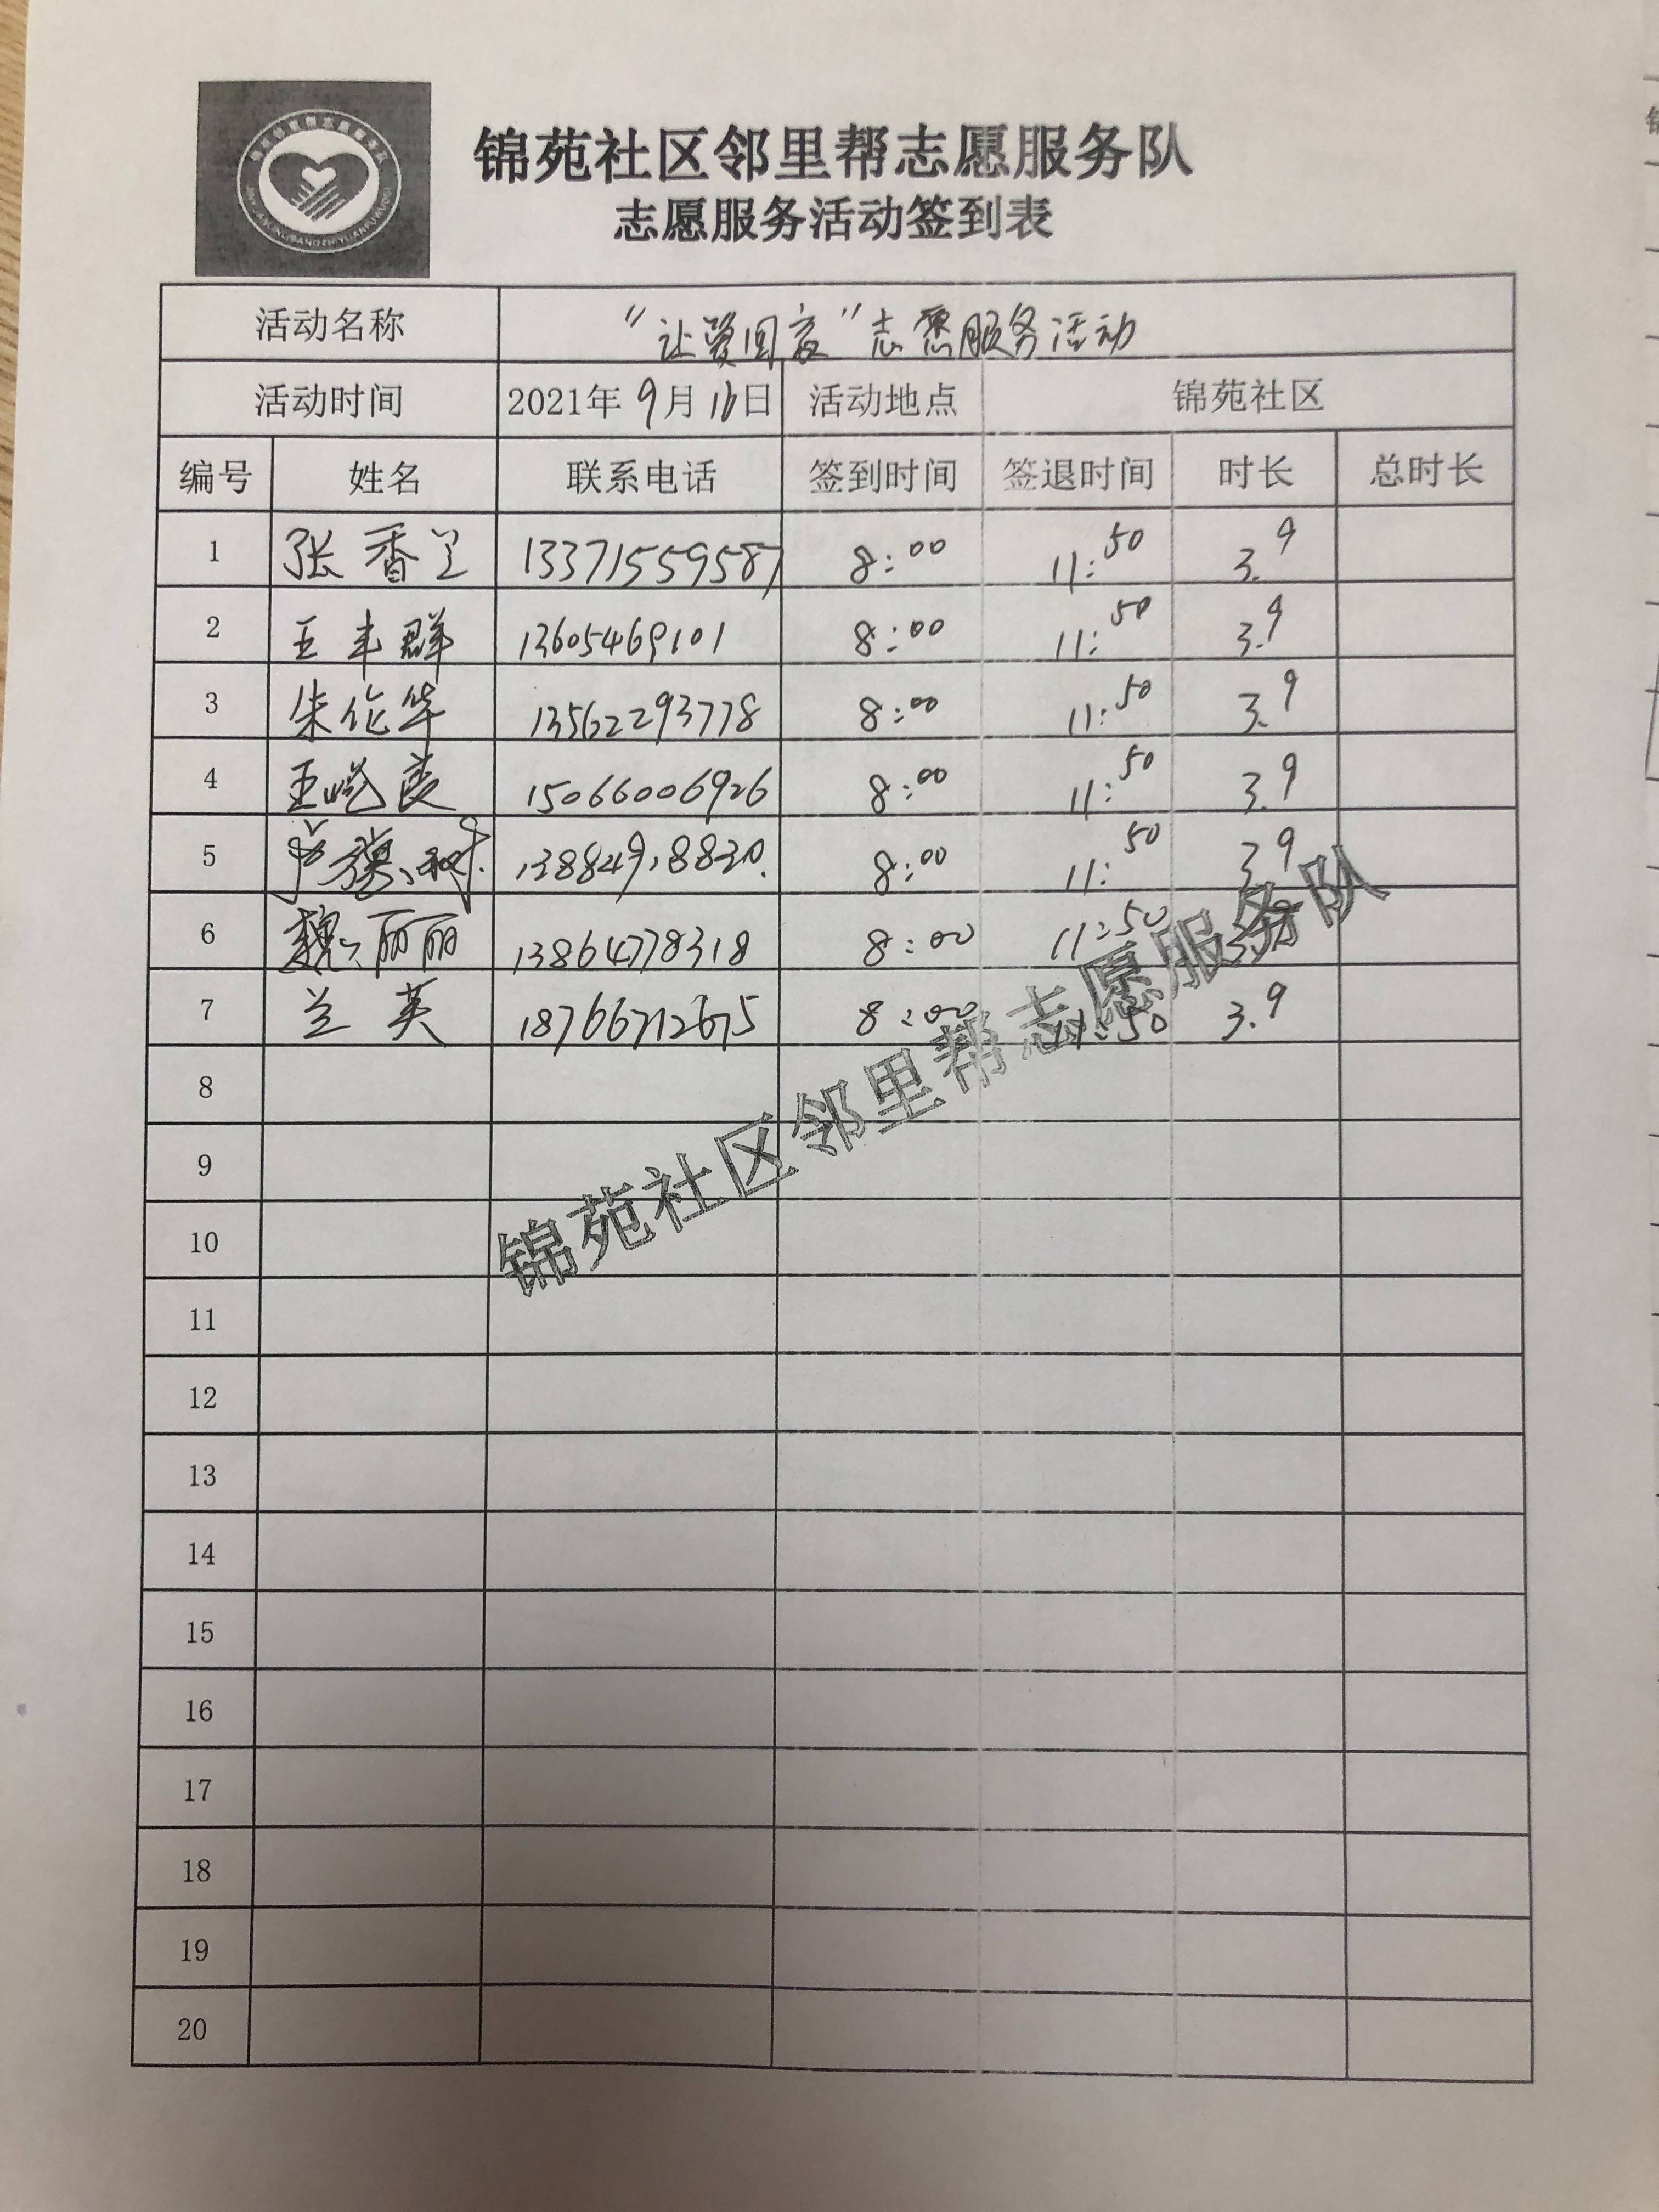 锦苑社区邻里帮志愿服务队
志愿服务活动签到表
活动名称 “让爱回家”志愿服务活动
活动时间 2021年9月16日 活动地点 锦苑社区
编号 姓名 联系电话 签到时间 签退时间 时长 总时长
1 张香兰 13371559587 8:00 11:50 3.9
2 王丰群 13605469101 8:00 11:50 3.9
3 朱作华 13562293778 8:00 11:50 3.9
4 15066006926 8:00 11:50 3.9
5 8:00 11:50 3.9
6 魏丽丽 13864778318 8:00 11:50 3.9
7 兰英 18766712675 8:00 11:50 3.9
8
9
10
11
12
13
14
15
16
17
18
19
20
锦苑社区邻里帮志愿服务队